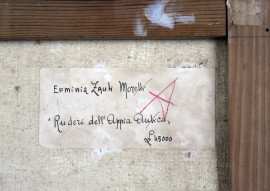 Erminia Zauli Morelli
"Ruderi dell'Appia Antica"
£ 45000